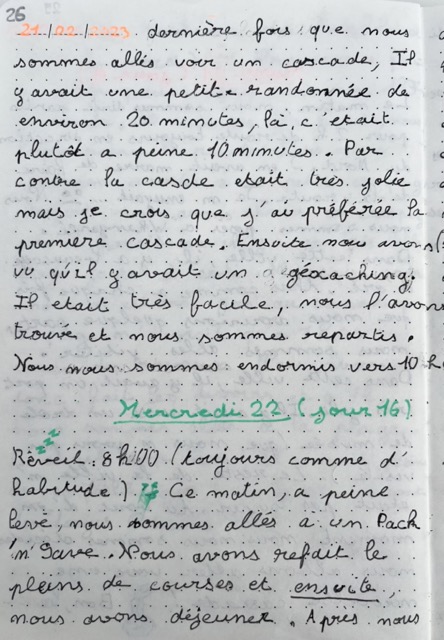 26
21/02/2023 dernière fois que nous
sommes allés voir un cascade, Il
y avait une petite randonnée de
environ 20 minutes, là, c'etait
plutôt a peine 10 minutes. Par
contre la casde etait très jolie
mais je crois que j'ai préférée la
première cascade. Ensuite nou avons
vu qu'il y avait un géocaching.
Il etait très facile, nous l'avons
trouvé et nous sommes repartis.
Nous nous sommes endormis vers 10 h
Mercredi 22 (jour 16)
zzz
Réveil : 8h00 (toujours comme d'
habitude) Ce matin, a peine
levé, nous sommes allés a un Pack
'n' Save. Nous avons refait le
pleins de courses et ensuite,
nous avons déjeuner. Apres nous